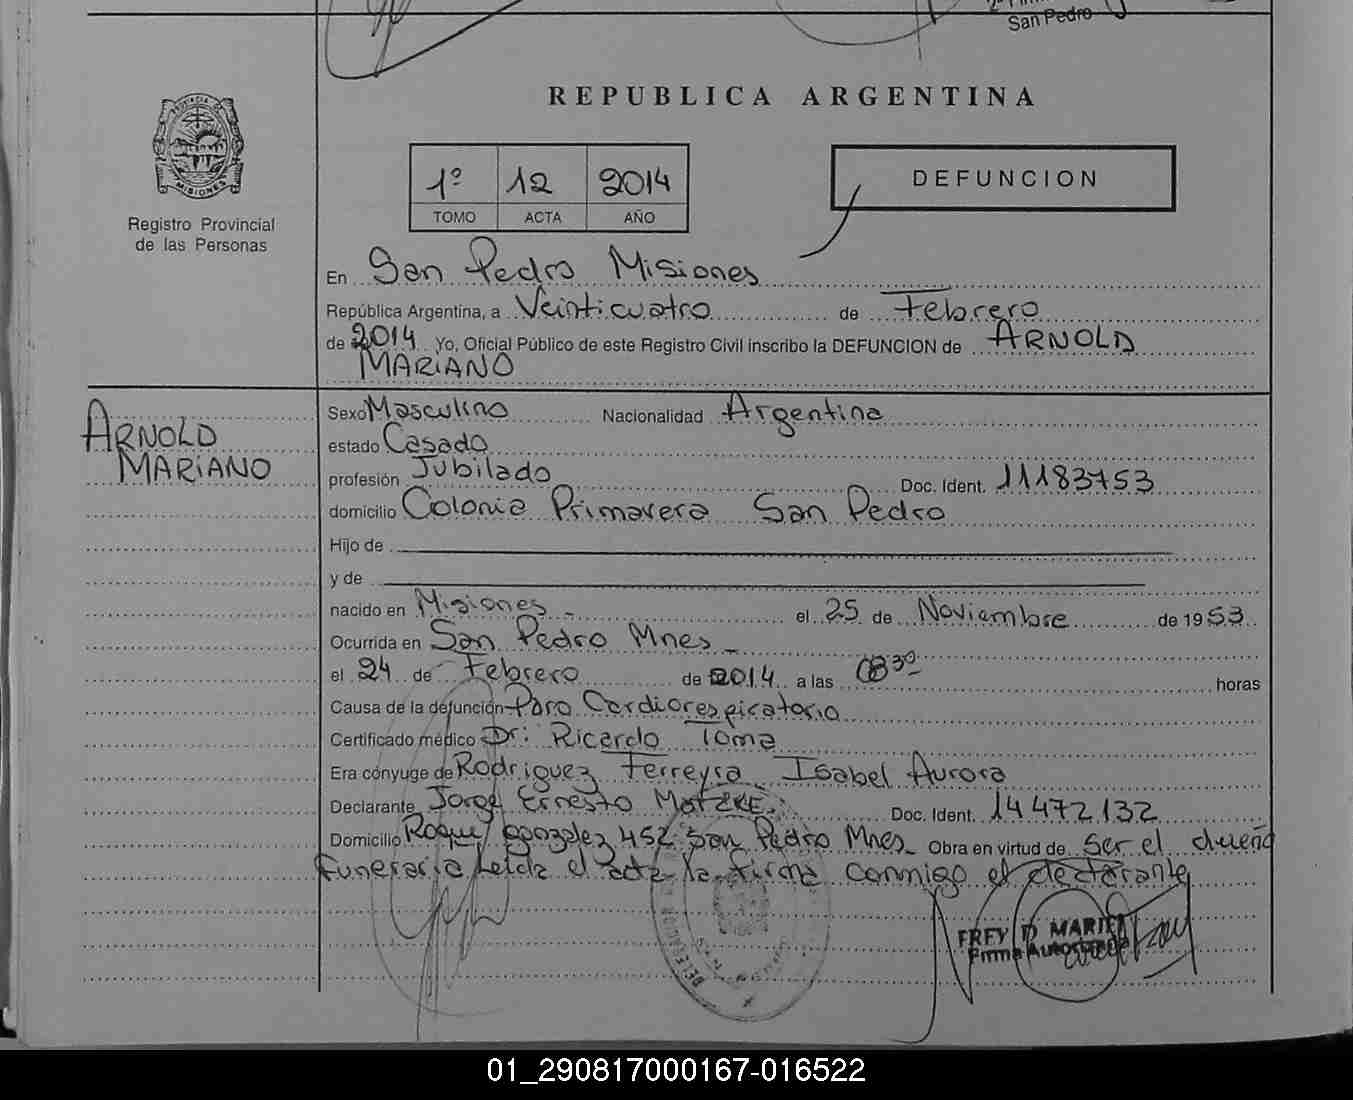 San Pedro
REPUBLICA ARGENTINA
1º 12 2014
TOMO ACTA AÑO
DEFUNCION
MISIONES
Registro Provincial
de las Personas
En San Pedro Misiones
República Argentina, a Veinticuatro de Febrero
de 2014 Yo, Oficial Público de este Registro Civil inscribo la DEFUNCION de ARNOLD
MARIANO
ARNOLD
MARIANO
Sexo Masculino Nacionalidad Argentina
estado Casado
profesión Jubilado Doc. Ident. 11183753
domicilio Colonia Primavera San Pedro
Hijo de
y de
nacido en Misiones - el 25 de Noviembre de 1953
Ocurrida en San Pedro Mnes -
el 24 de Febrero de 2014 a las 08 30 horas
Causa de la defunción Paro Cardiorespiratorio
Certificado médico Dr: Ricardo Toma
Era cónyuge de Rodriguez Ferreyra Isabel Aurora
Declarante Jorge Ernesto MATZKE. Doc. Ident. 14472132
Domicilio Roque gonzalez 452 San Pedro Mnes - Obra en virtud de ser el dueño
funeraria Leida el acta la firma conmigo el declarante
FREY D MARIEL
Firma Autorizada
01_290817000167-016522